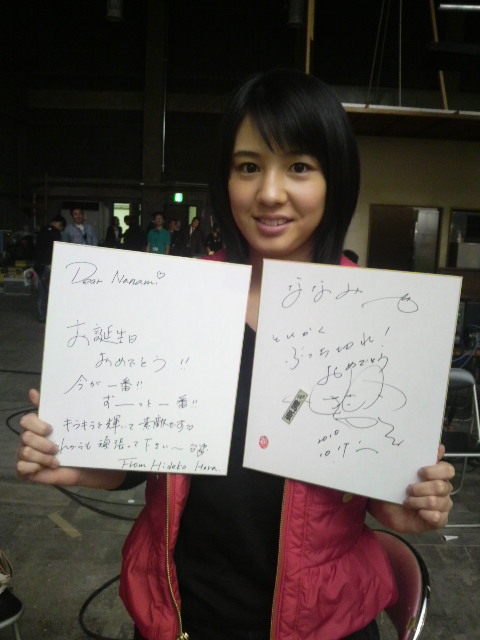 Dear Nanami♡
お誕生日
おめでとう!!
今が一番!!
ずーっと一番!!
キラキラと輝いて素敵です♡
これからも頑張って下さい〜
From Hideko Hara
ななみ
とにかく
ぶっち切れ!
おめでとう
2010
10.17